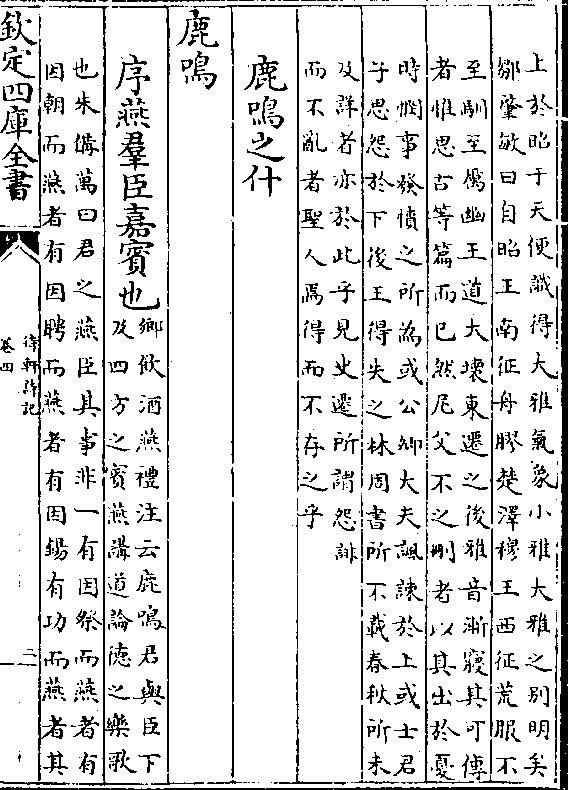 上於昭于天便識得大雅氣象小雅大雅之别明矣
鄒肇敏曰自昭王南征舟膠楚澤穆王西征荒服不
至馴至厲幽王道大壞東遷之後雅音漸寢其可傳
者惟思古等篇而已然尼父不之刪者以其出於憂
時憫事發憤之所為或公卿大夫諷諫於上或士君
子思怨於下後王得失之林周書所不載春秋所未
及詳者亦於此乎見史遷所謂怨誹
而不亂者聖人焉得而不存之乎
鹿鳴之什
鹿鳴
序燕羣臣嘉賓也
鄉飲酒燕禮注云鹿鳴君與臣下
及四方之賓燕講道論德之樂歌
也朱備萬曰君之燕臣其事非一有因祭而燕者有
因朝而燕者有因聘而燕者有因錫有功而燕者其
欽定四庫全書
待軒詩記
卷四